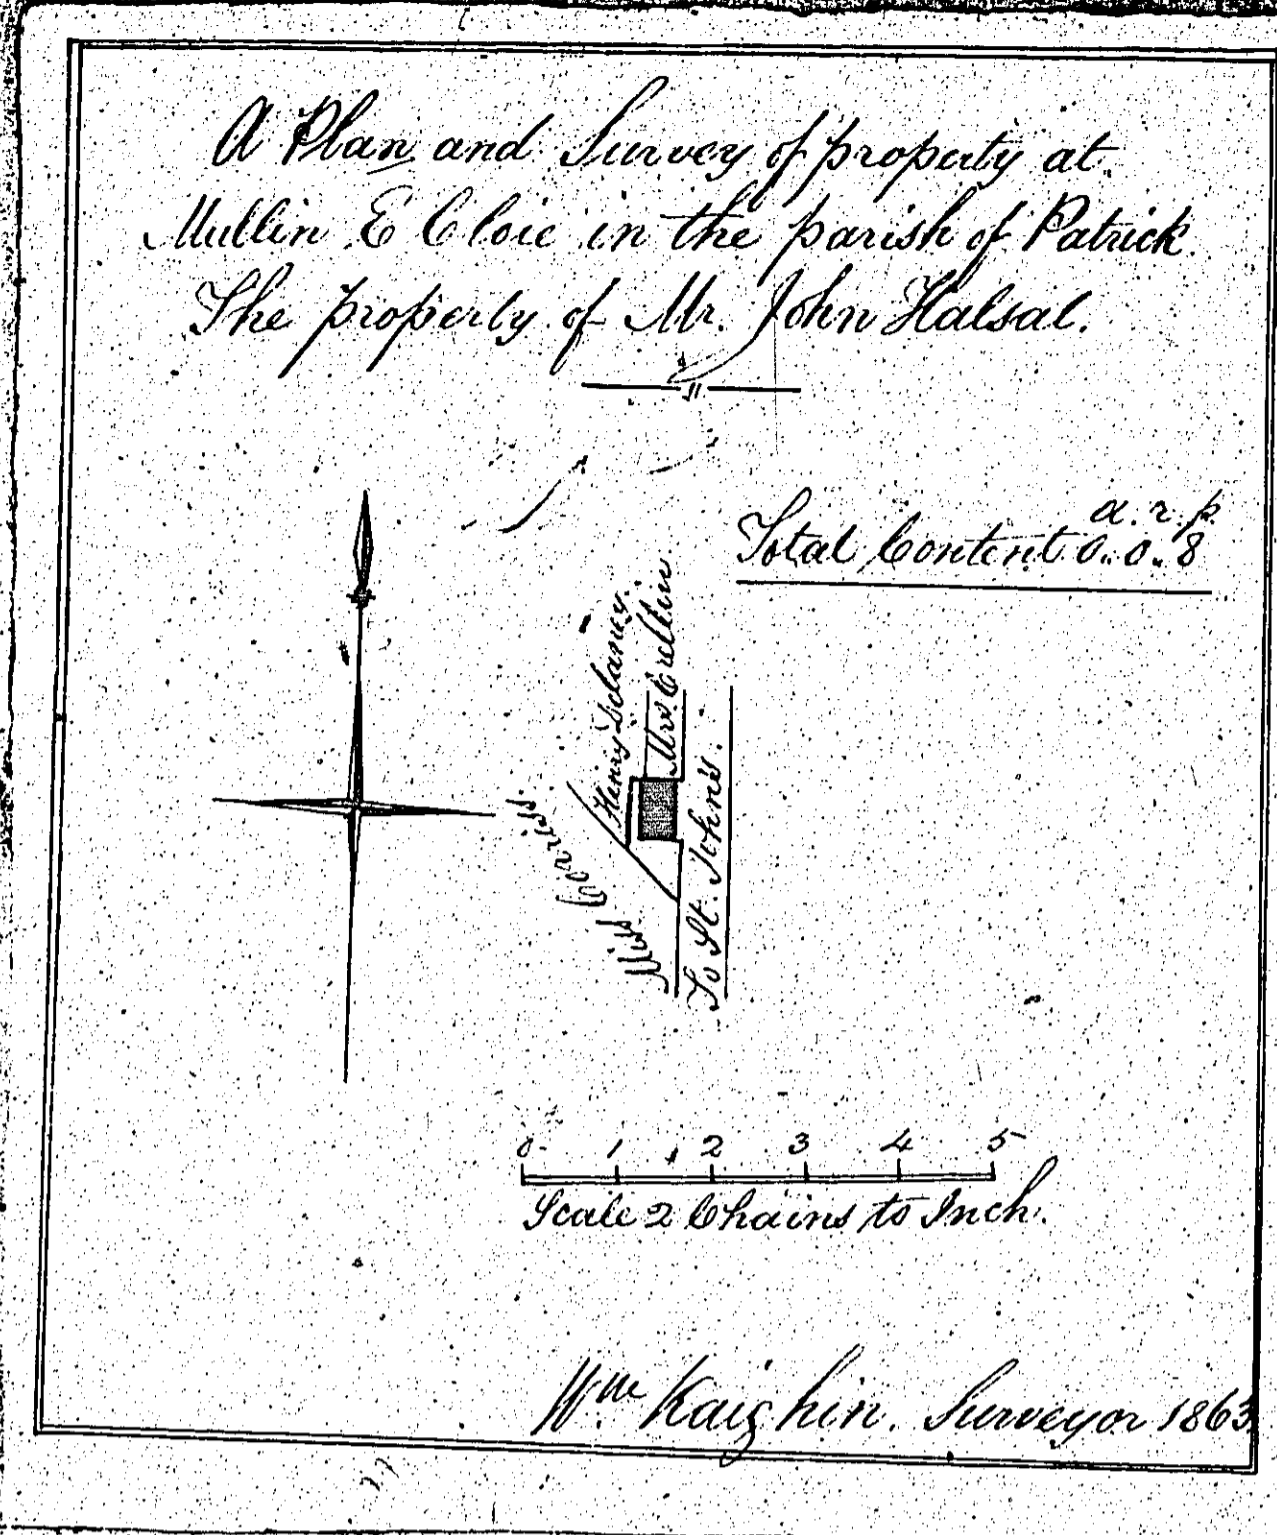 A Plan and Survey of property at
Mullin E Cloie in the parish of Patrick.
The property of Mr. John Halsal.
a. r. p.
Total Content 0.. 0.. 8
Henry Delaney.
Mrs. Crellin
Miss Corriss.
To St. John's.
0 1 2 3 4 5
Scale 2 Chains to Inch.
Wm. Kaighin. Surveyor 1863